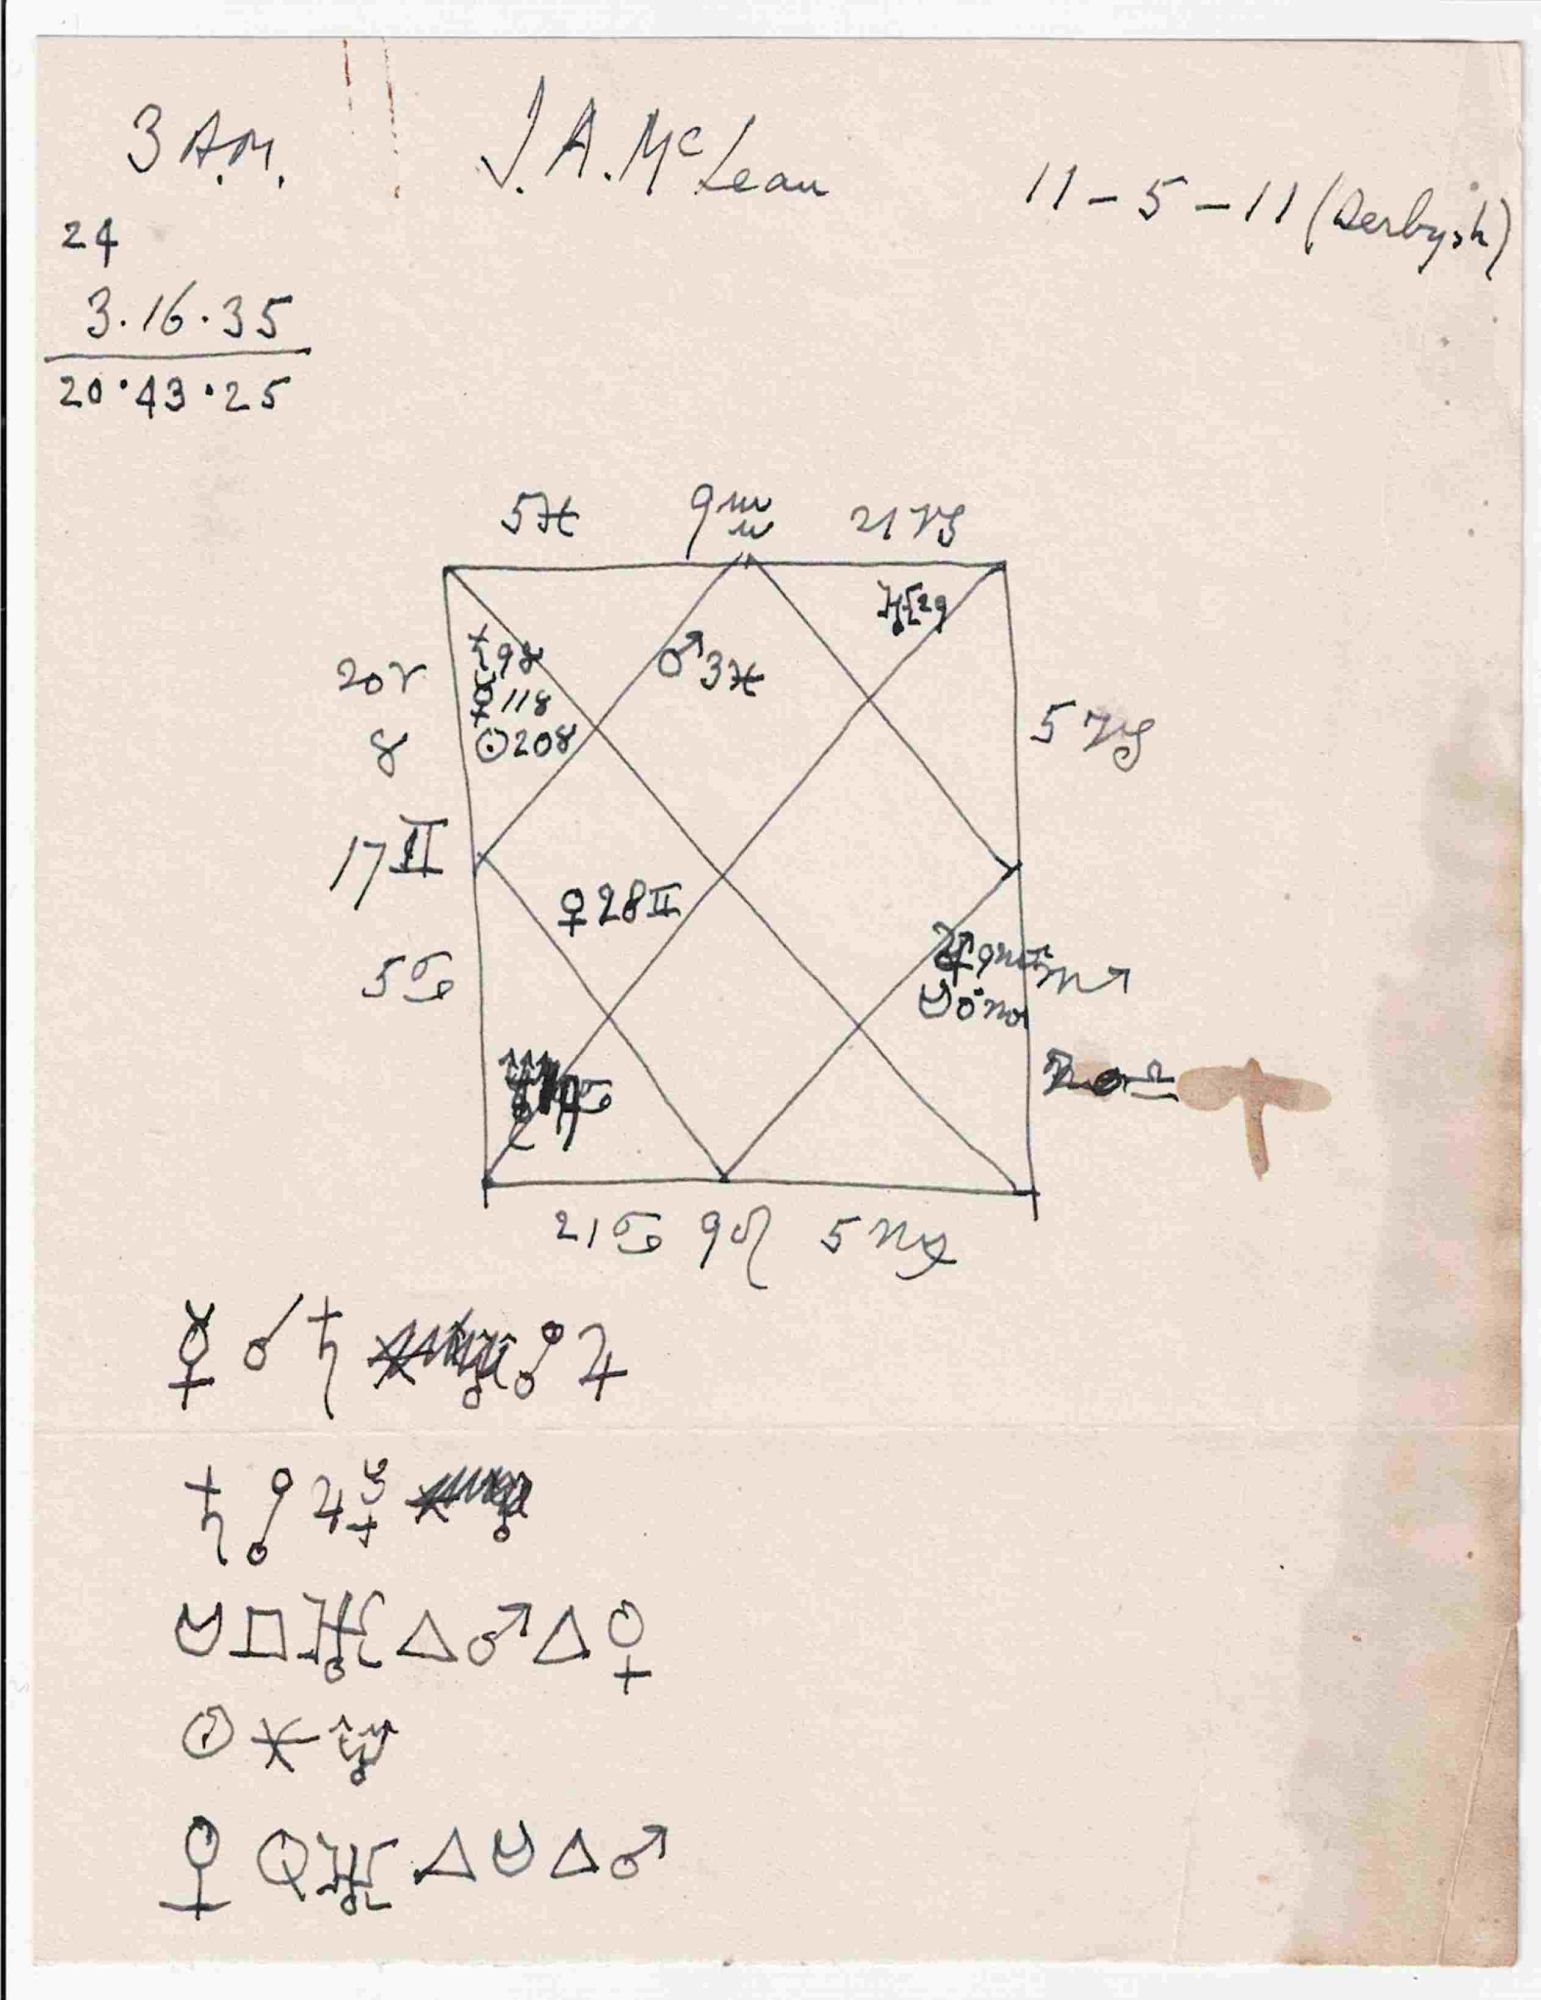 3 A.M.
J. A. McLean
11-5-11 (Derbysh)
24
3.16.35
20.43.25
5♓ 9♒ 21♑
♅29
20♈ ♄9♉ ♂3♓
☿11♉
♉ ☉20♉
5♑
17♊
♀28♊
5♋
♏ ♐
♎
21♋ 9♌ 5♍
☿ ☌ ♄ ☍ ♃
♄ ☍ ♃ ☿
☽ □ ♅ △ ♂ △ ♀
☉ ⚹ ♆
♀ Q ♅ △ ☽ △ ♂